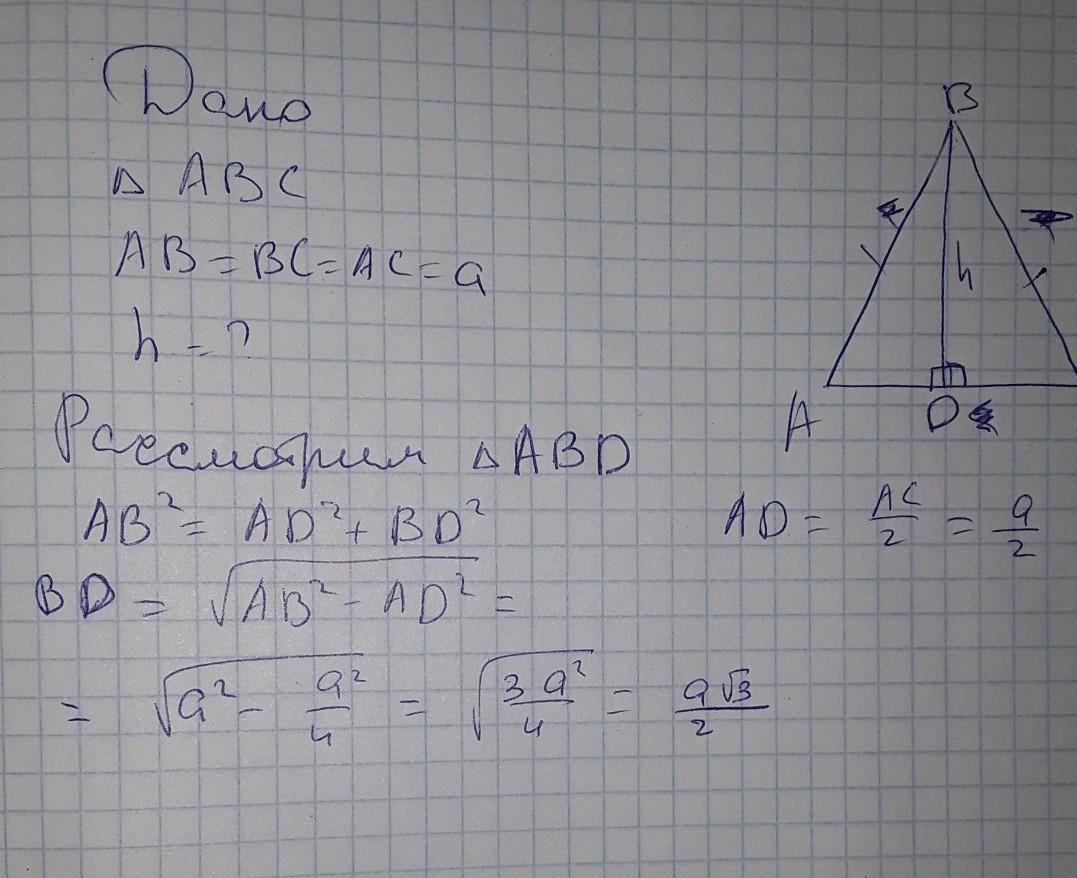 Дано
△ ABC
AB = BC = AC = a
h - ?
B
h
A
D
Рассмотрим △ABD
AB² = AD² + BD²
AD = AC/2 = a/2
BD = √(AB² - AD²) =
= √(a² - a²/4) = √(3a²/4) = a√3/2